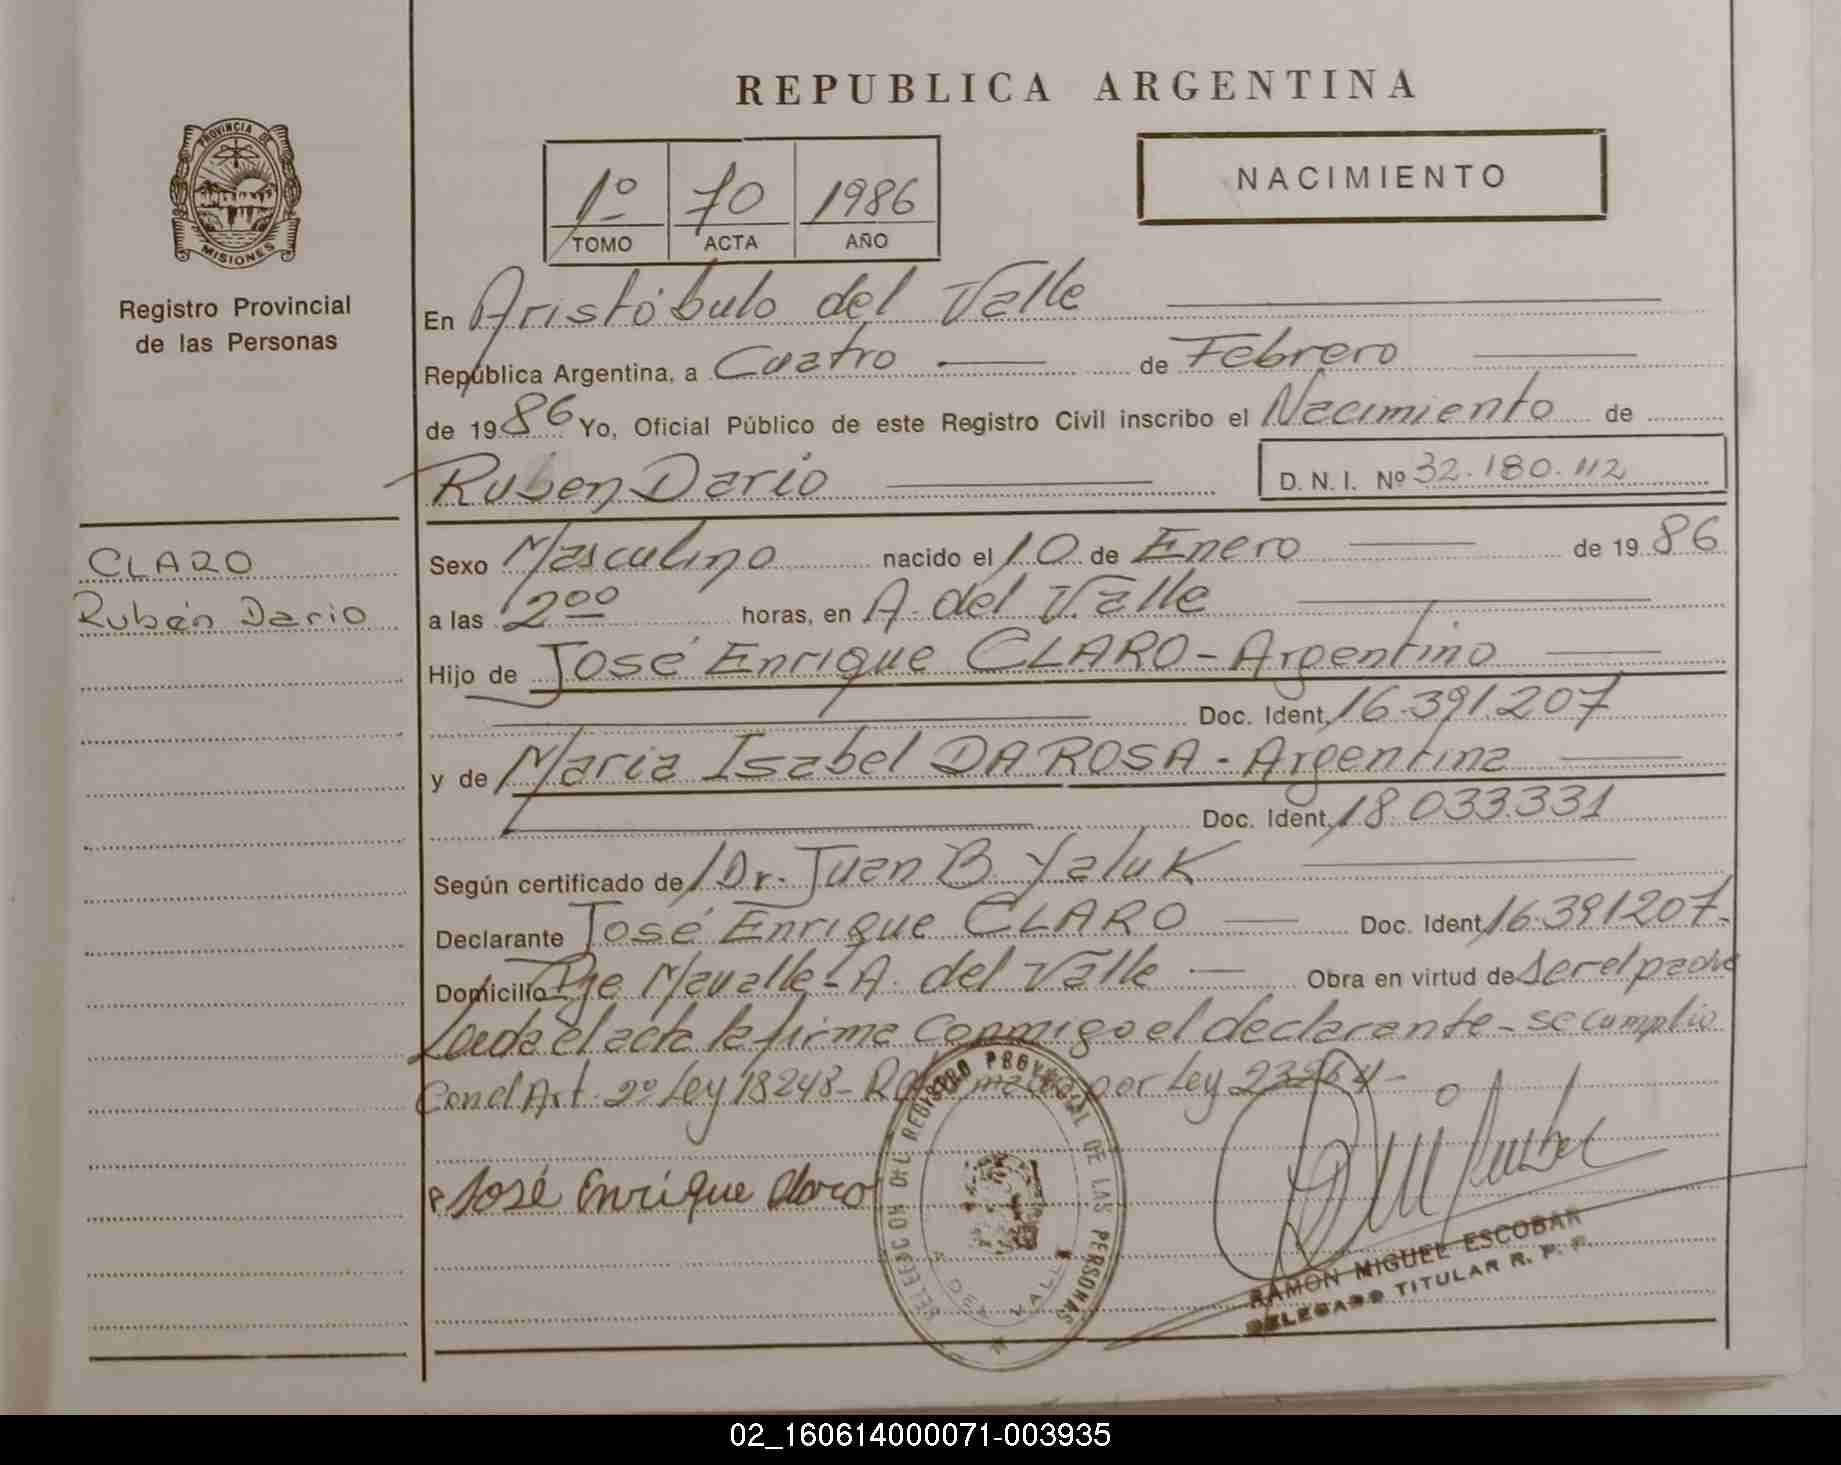 REPUBLICA ARGENTINA
PROVINCIA DE
MISIONES
Registro Provincial
de las Personas
1º 70 1986
TOMO ACTA AÑO
NACIMIENTO
En Aristóbulo del Valle
República Argentina, a Cuatro de Febrero
de 1986 Yo, Oficial Público de este Registro Civil inscribo el Nacimiento de
Ruben Dario D. N. I. Nº 32.180.112
CLARO
Rubén Dario
Sexo Masculino nacido el 10 de Enero de 1986
a las 2⁰⁰ horas, en A. del Valle
Hijo de José Enrique CLARO - Argentino
Doc. Ident. 16.391.207
y de Maria Isabel DA ROSA - Argentina
Doc. Ident. 18.033.331
Según certificado de Dr. Juan B. Yaluk
Declarante José Enrique CLARO Doc. Ident. 16.391207-
Domicilio Pje Mavalle - A. del Valle Obra en virtud de ser el padre
Leida el acta la firma conmigo el declarante - se cumplio
Con el Art. 2º Ley 18248 - por Ley 23264 -
José Enrique Claro
REGISTRO PROVINCIAL DE LAS PERSONAS
VALLE
RAMON MIGUEL ESCOBAR
DELEGADO TITULAR R. P. P.
02_160614000071-003935